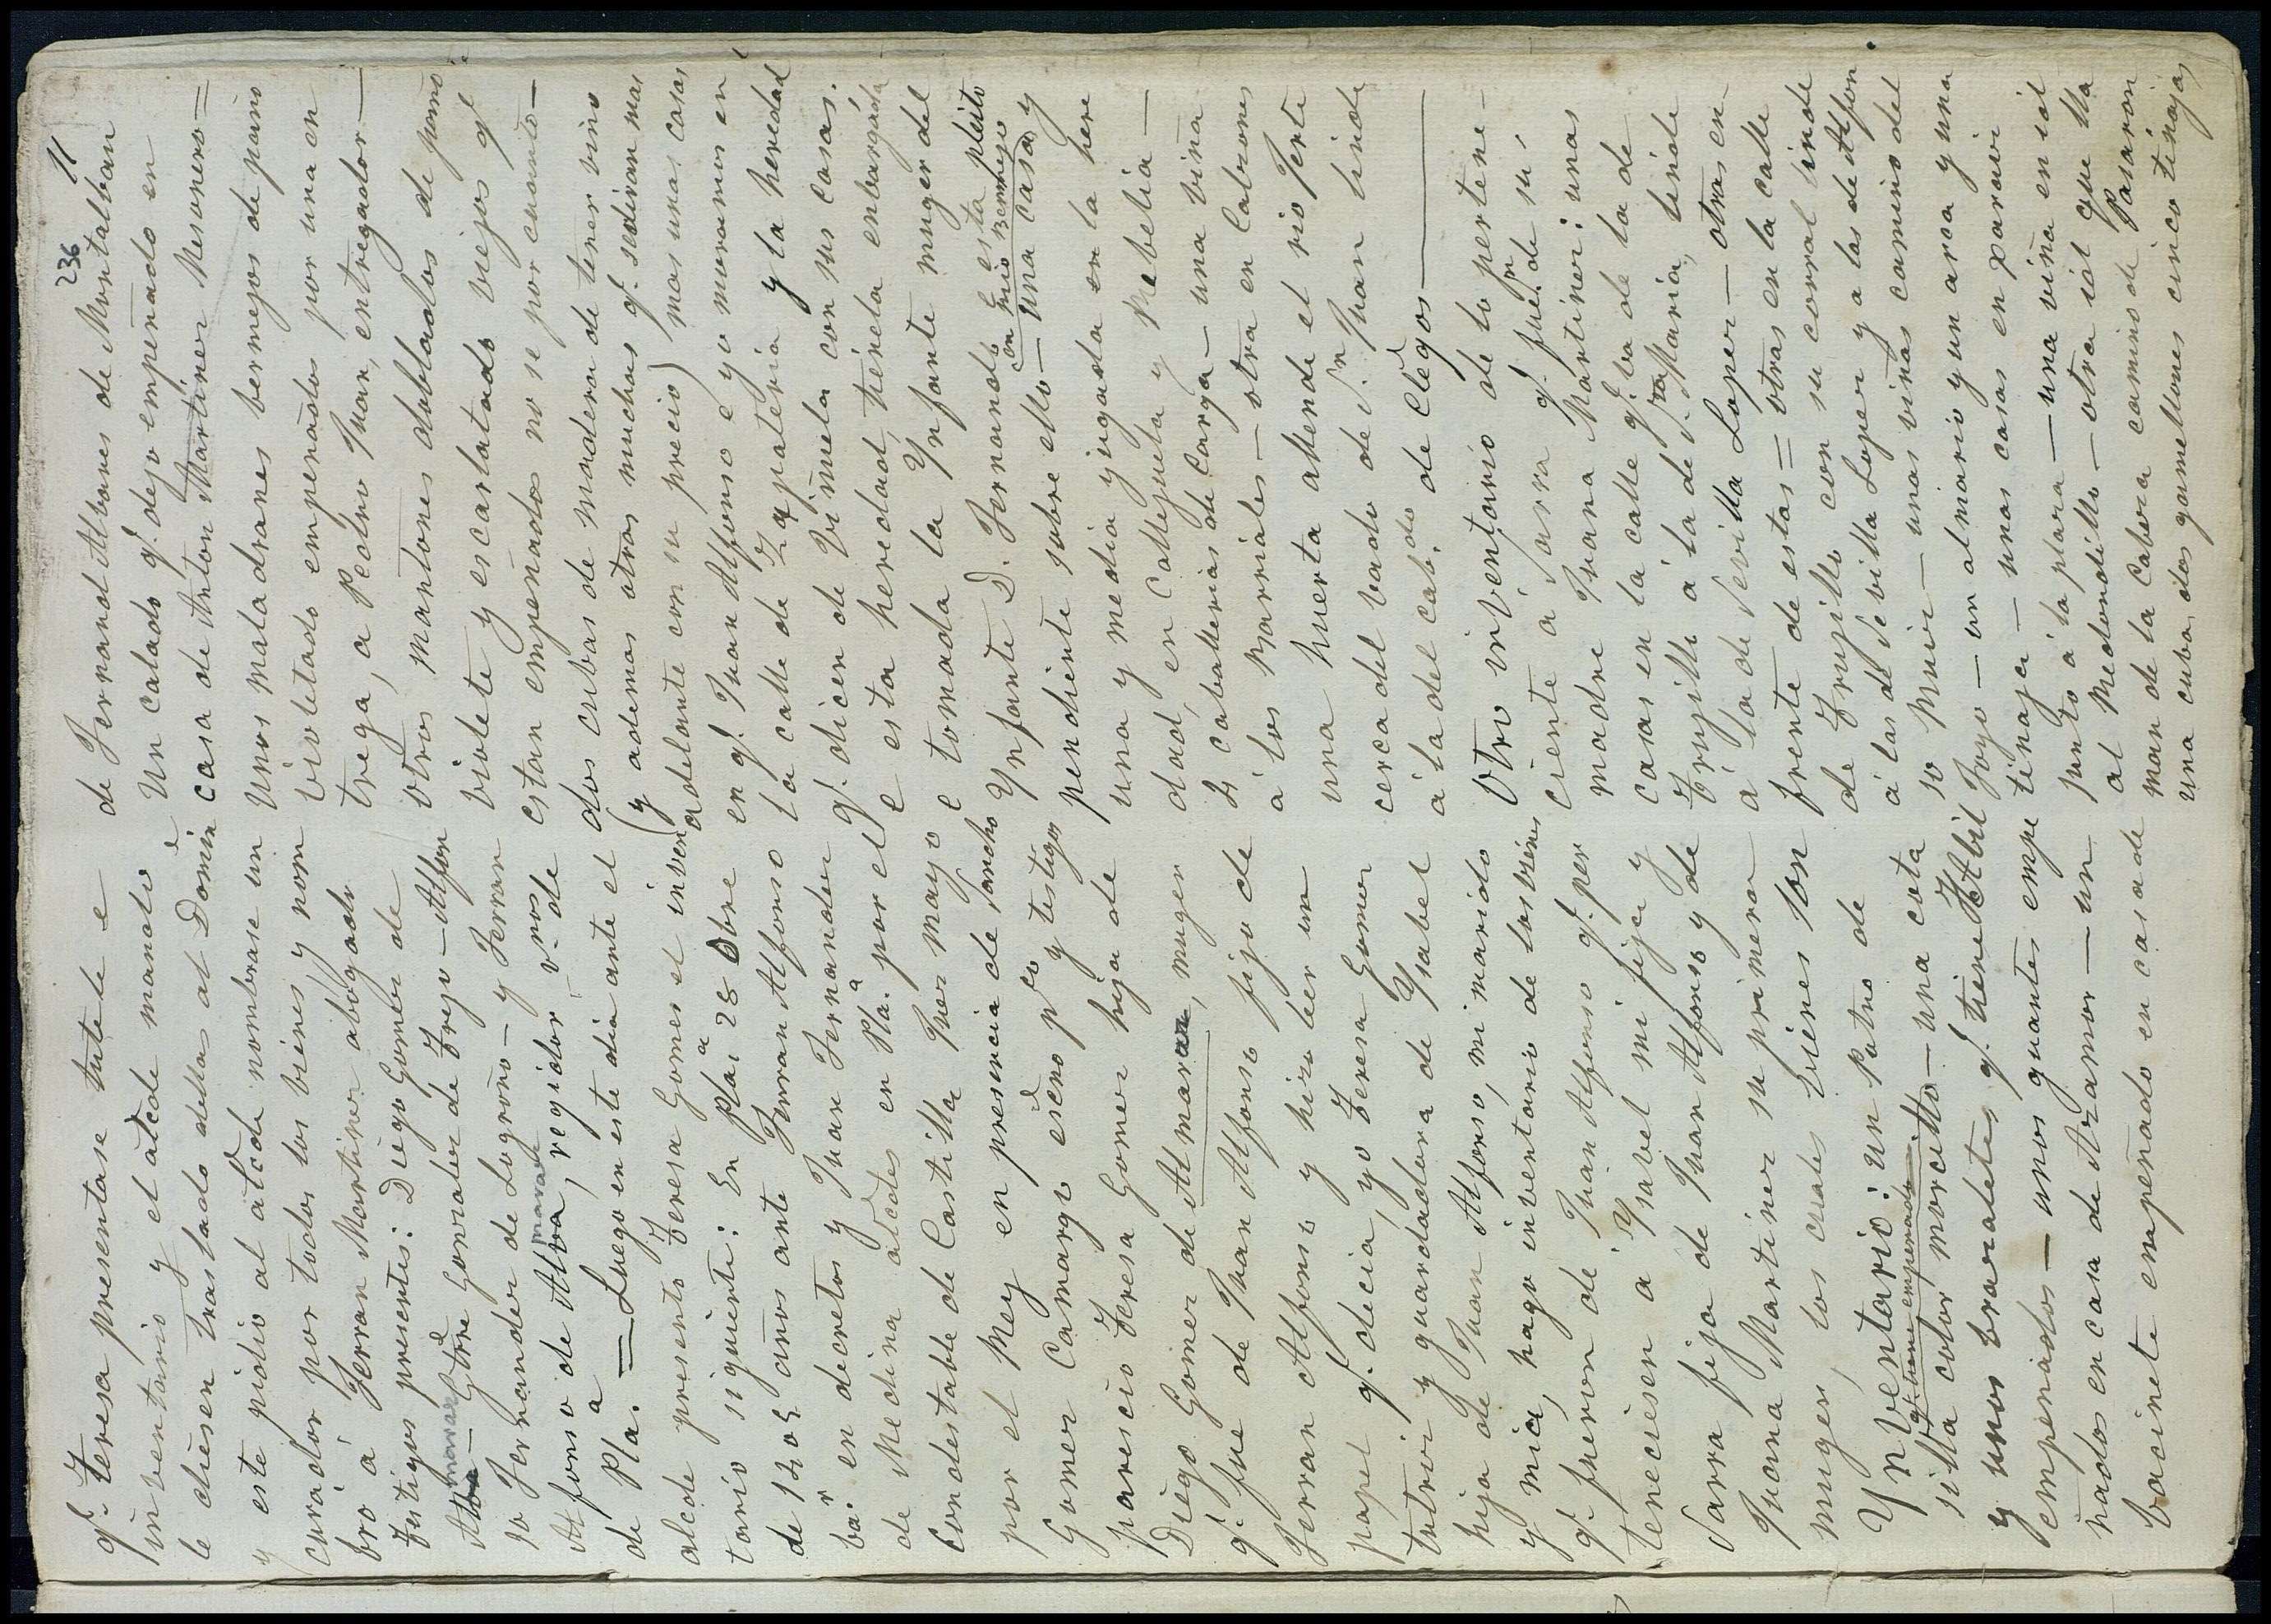 236
11
q.e Teresa presentase tutele e
inventario y el alcde mandó
le diesen traslado dellas al Domin
y este pidio al alcde nombrase un
curador por todos los bienes y nom
bro á Ferran Martinez abogado
Testigos presentes: Diego Gomez de
Gtre Gonzalez de Trejo — Alfon
so Fernandez de Logroño — y Ferran
Alfonso de Alba, regidor v.nos de
de Pla.a = Luego en este dia ante el
alcde presentó Teresa Gomez el inven
tario siguiente: En Pla.a 28 Obre
de 1405 años ante Ferran Alfonso
ba.r en decretos y Juan Fernandez
de Medina alcdes en Pla.a por el
Condestable de Castilla Jues mayo
por el Rey en presencia de Sancho
Gomez Camargo escno pco y testigos
parescio Teresa Gomez hija de
Diego Gomez de Almaraz, muger
q.e fue de Juan Alfonso fijo de
Ferran Alfonso y hizo leer un
papel q.e decia, yo Teresa Gomez
tutriz y guardadora de Ysabel
hija de Juan Alfonso, mi marido
y mia, hago inventario de los bienes
q.e fueron de Juan Alfonso q.e per
tenecisen a Ysabel mi fija y
Sarra fija de Juan Alfonso y de
Juana Martinez su primera
muger, los cuales bienes son
Ynventario: Un Potro de
q.e tiene empenado
silla color morcillo — una cota
y unos brazaletes q.e tiene Abil
empeñados — unos guantes empe
ñados en casa de Azamor — un
bacinete empeñado en casa de
de Fernand Alvarez de Montalban
Un calado q.e dejo empeñado en
casa de Anton Martinez Mesonero =
Unos maladranes bermejos de paño
violetado empeñados por una en
trega, a Pedro Juan, entregador —
otros mantones doblados de paño
violete y escarlatado viejos q.e
estan empeñados no se por cuanto —
dos cubas de madera de tener vino
(y ademas otras muchas q.e sedivan mas
adelante con su precio) mas unas casas
en q.e Juan Alfonso e yo moramos en
la calle de Zapateria y la heredad
q.e dicen de Viñuela con sus casas.
e esta heredad tienela embargada
e tomada la Ynfante muger del
Ynfante D. Fernando e esta pleito
con mio Bermejo
pendiente sobre ello — una casa y
una y media yugada en la here
dad, en Callejuela y Rebelia —
4 caballerias de Carga — una viña
a los Barriales — otra en Cabzones
una huerta allende el rio Jerte
cerca del vado de S.n Juan linde
á la del cab.do de Clegos —
Otro inventario de lo pertene-
ciente á Sarra q.e fué de su
madre Juana Martinez: unas
casas en la calle q.e va de la de
Trujillo á la de S.ta Maria, linde
á la de Sevilla Lopez — otras en-
frente de estas = otras en la calle
de Trujillo con su corral linde
á las de Sevilla Lopez y a las de Alfon
so Ruiz — unas viñas camino del
Joyo — un almario y un arca y una
tinaja — unas casas en Xaraiz
junto á la plaza — una viña en iol
al Redondillo — otra iol que lla
man de la Cabeza camino de Pasaron
una cuba, dos gamellones cinco tinajas